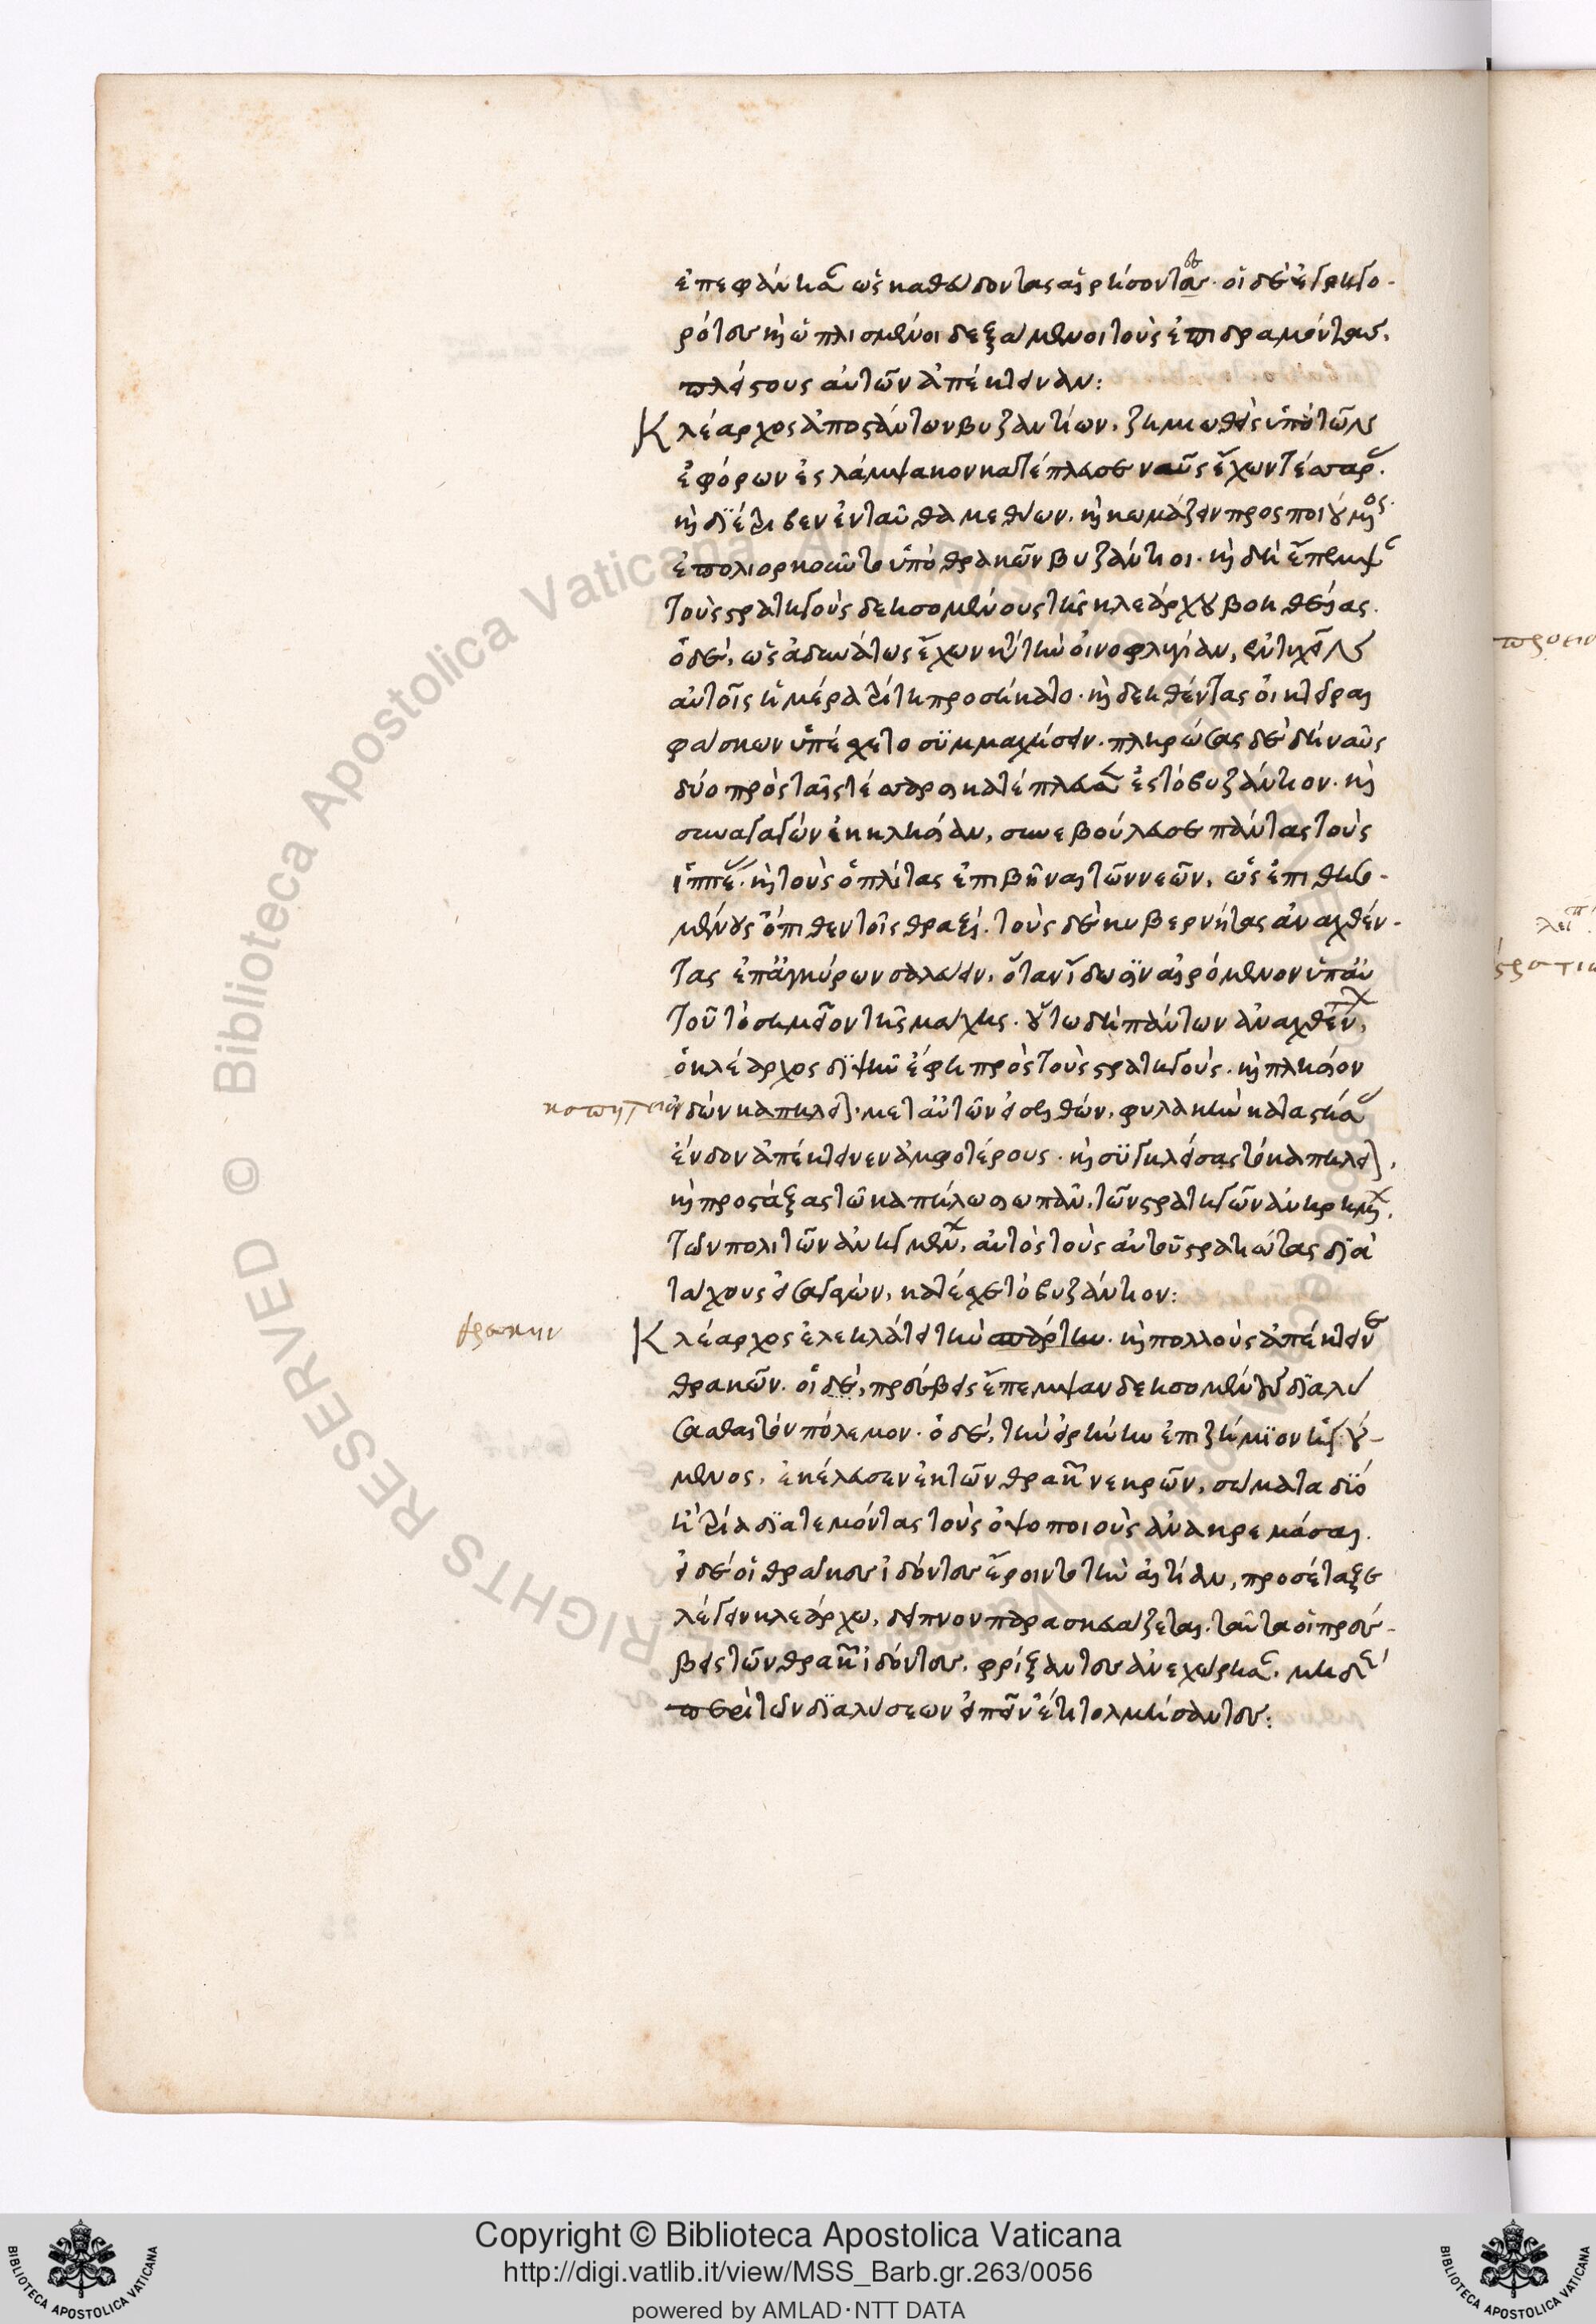 ἐπεφάνησαν ὡς καθεύδοντας αἱρήσοντες. οἱ δὲ ἐγρηγο-
ρότες καὶ ὡπλισμένοι δεξάμενοι τοὺς ἐπιδραμόντας,
πλείστους αὐτῶν ἀπέκτειναν:
Κλέαρχος ἀποστάντων βυζαντίων, ζημιωθεὶς ὑπὸ τῶν
ἐφόρων ἐς λάμψακον κατέπλευσε ναῦς ἔχων τέσσαρας.
καὶ διέτριβεν ἐνταῦθα μεθύων, καὶ κωμάζειν προσποιούμενος.
ἐπολιορκοῦντο ὑπὸ θρακῶν βυζάντιοι. καὶ δὴ ἔπεμψαν
τοὺς στρατηγοὺς δεησομένους τῆς κλεάρχου βοηθείας.
ὁ δὲ, ὡς ἀδυνάτως ἔχων κατὰ τὴν οἰνοφλυγίαν, ἐντυχεῖν
αὐτοῖς ἡμέρα τρίτη προσήκατο. καὶ δεηθέντας οἰκτεῖραι
φάσκων ὑπέσχετο συμμαχήσειν. πληρώσας δὲ δὴ ναῦς
δύο πρὸς ταῖς τέσσαρσι κατέπλευσεν ἐς τὸ βυζάντιον. καὶ
συναγαγὼν ἐκκλησίαν, συνεβούλευσε πάντας τοὺς
ἱππέας. καὶ τοὺς ὁπλίτας ἐπιβῆναι τῶν νεῶν, ὡς ἐπιθησο-
μένους ὄπισθεν τοῖς θραξί. τοὺς δὲ κυβερνήτας ἀναχθέν-
τας ἐπ' ἀγκύρων σαλεύειν, ὅταν ἴδωσιν αἱρόμενον ὑπ' αὐ
τοῦ τὸ σημεῖον τῆς μάχης. οὕτω δὴ πάντων ἀναχθέντων,
ὁ κλέαρχος διψῆν ἔφη πρὸς τοὺς στρατηγούς. καὶ πλησίον
ἰδὼν καπηλεῖον. μετ' αὐτῶν εἰσελθὼν, φυλακὴν καταστήσας
ἔνδον ἀπέκτεινεν ἀμφοτέρους. καὶ συγκλείσας τὸ καπηλεῖον,
καὶ προστάξας τῶ καπήλω σιωπᾶν, τῶν στρατηγῶν ἀνηρημένων.
τῶν πολιτῶν ἀνηγμένων, αὐτὸς τοὺς αὑτοῦ στρατιώτας διὰ
τάχους εἰσαγαγὼν, κατέσχε τὸ βυζάντιον:
θράκην
Κλέαρχος ἐλεηλάτει τὴν καὶ πολλοὺς ἀπέκτεινε
θρακῶν. οἱ δὲ, πρέσβεις ἔπεμψαν δεησομένους διαλύ
σασθαι τὸν πόλεμον. ὁ δὲ, τὴν εἰρήνην ἐπιζήμιον ἡγού-
μενος, ἐκέλευσεν ἐκ τῶν θρακῶν νεκρῶν, σώματα δύο
ἢ τρία διατεμόντας τοὺς ὀψοποιοὺς ἀνακρεμάσαι.
εἰ δὲ οἱ θρᾶκες ἰδόντες ἔροιντο τὴν αἰτίαν, προσέταξε
λέγειν κλεάρχω, δεῖπνον παρασκευάζεται. ταῦτα οἱ πρέσ-
βεις τῶν θρακῶν ἰδόντες, φρίξαντες ἀνεχώρησαν. μηδὲ
περὶ τῶν διαλύσεων εἰπεῖν ἔτι τολμήσαντες:
Copyright © Biblioteca Apostolica Vaticana
http://digi.vatlib.it/view/MSS_Barb.gr.263/0056
powered by AMLAD·NTT DATA
BIBLIOTECA APOSTOLICA VATICANA
BIBLIOTECA APOSTOLICA VATICANA
Biblioteca Apostolica Vaticana ALL RIGHTS RESERVED ©